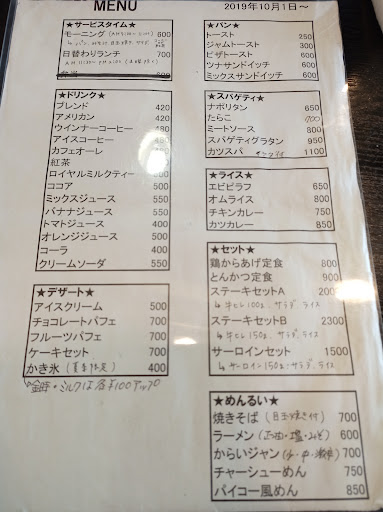 MENU
2019年10月1日～
★サービスタイム★
モーニング 600
日替わりランチ 700
★ドリンク★
ブレンド 420
アメリカン 420
ウインナーコーヒー 480
アイスコーヒー 480
カフェオーレ
紅茶
ロイヤルミルクティー
ココア 500
ミックスジュース 550
バナナジュース 550
トマトジュース 400
オレンジジュース 500
コーラ 400
クリームソーダ 550
★デザート★
アイスクリーム 500
チョコレートパフェ 700
フルーツパフェ 700
ケーキセット 700
かき氷（夏季限定） 400
金時・ミルクは各¥100アップ
★パン★
トースト 250
ジャムトースト 300
ピザトースト 600
ツナサンドイッチ 600
ミックスサンドイッチ 600
★スパゲティ★
ナポリタン 650
たらこ 700
ミートソース 800
スパゲティグラタン 950
カツスパ 1100
★ライス★
エビピラフ 650
オムライス 800
チキンカレー 750
カツカレー 850
★セット★
鶏からあげ定食 800
とんかつ定食 900
ステーキセットA 2000
↳牛ヒレ100g、サラダ、ライス
ステーキセットB 2300
↳牛ヒレ150g、サラダ、ライス
サーロインセット 1500
↳サーロイン150g、サラダ、ライス
★めんるい★
焼きそば（目玉焼き付） 700
ラーメン（正油・塩・みそ） 600
からいジャン 700
チャーシューめん 750
パイコー風めん 850